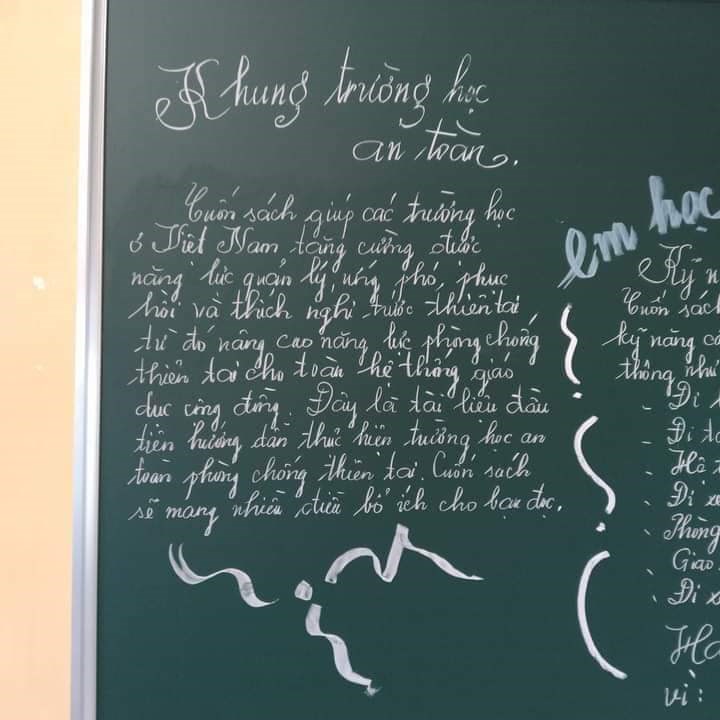 Khung trường học
an toàn.
Cuốn sách giúp các trường học
ở Việt Nam tăng cường được
năng lực quản lý, ứng phó, phục
hồi và thích nghi trước thiên tai
từ đó nâng cao năng lực phòng chống
thiên tai cho toàn hệ thống giáo
dục cộng đồng. Đây là tài liệu đầu
tiên hướng dẫn thực hiện trường học an
toàn phòng chống thiên tai. Cuốn sách
sẽ mang nhiều điều bổ ích cho bạn đọc.
em học
Kỹ n
Cuốn sách
kỹ năng cơ
thông như
- Đi
- Đi
- Hệ
- Đi xe
- Phòng
- Giao
- Đi x
Ha
vì: